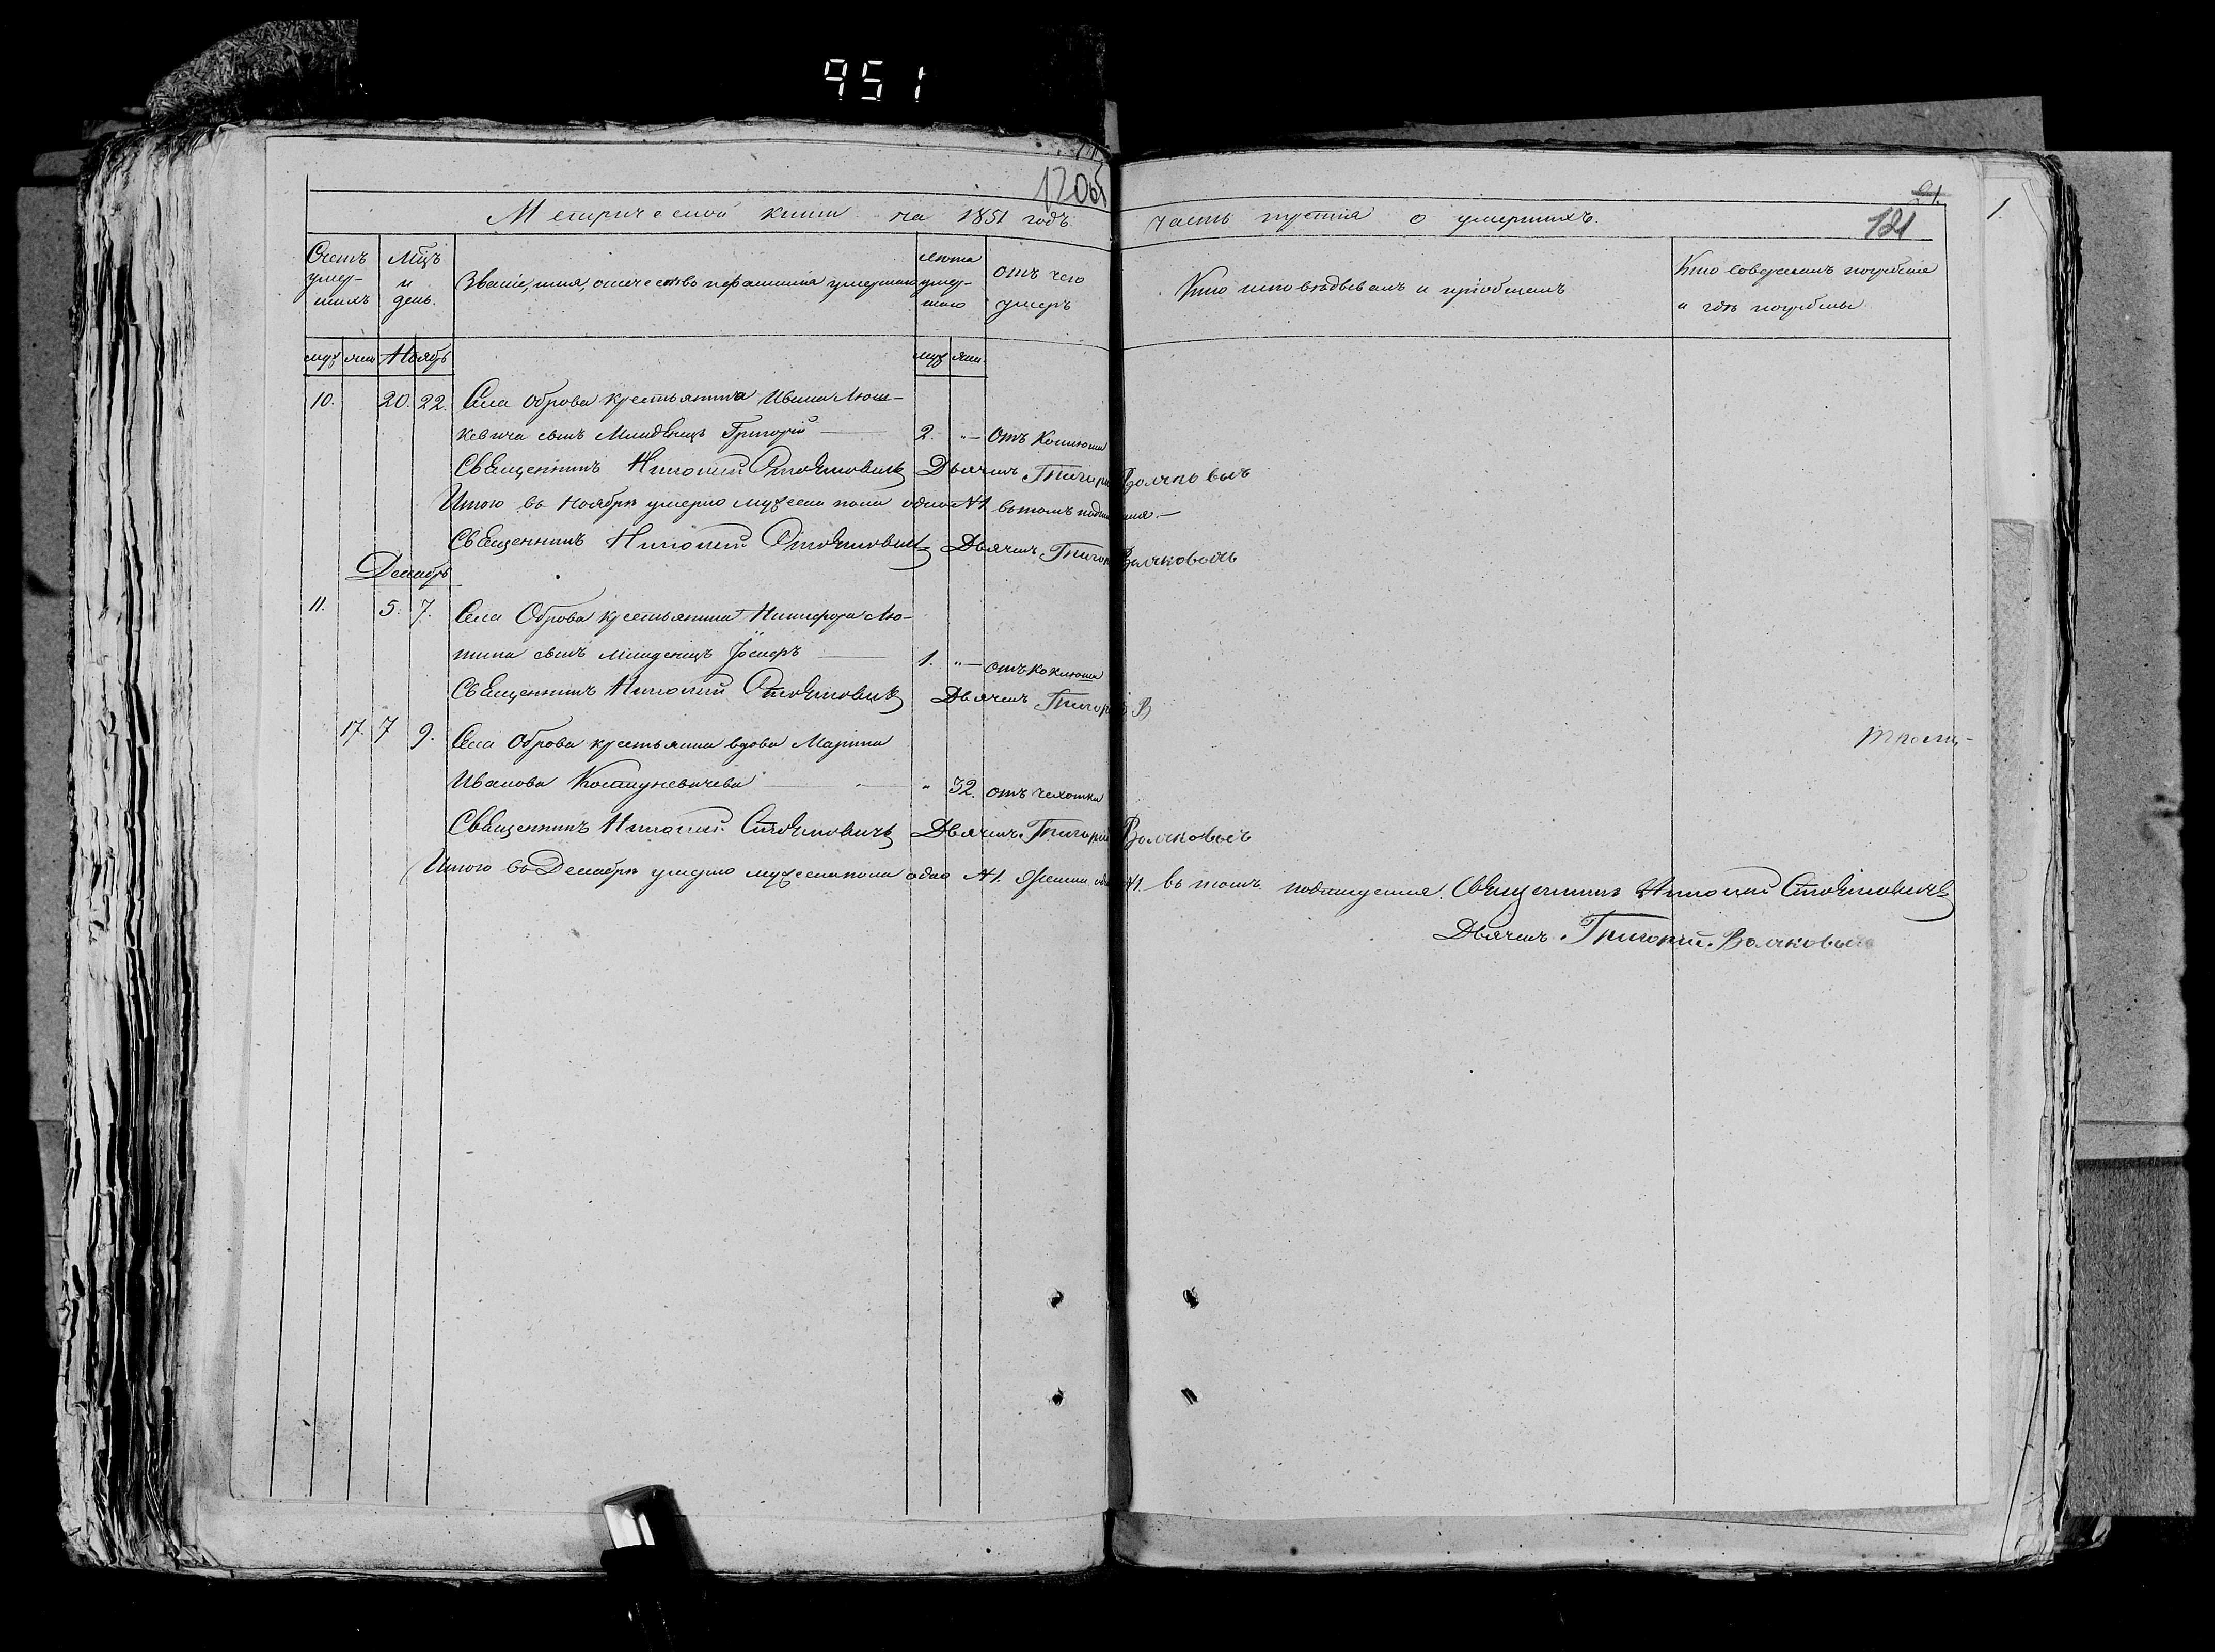 951
120об
Метрической книги на 1851 годъ часть третія о умершихъ.
121
1.
Счетъ умер-шихъ
Мцъ и день.
Званіе, имя, отчество и фамилія умершаго
лета умер-шаго
отъ чего умеръ
Кто исповѣдывалъ и пріобщалъ
Кто совершалъ погребеніе и гдѣ погребены
муж жен Ноябрь муж жен.
10. 20. 22. Села Оброва крестьянина Ивана Люш-
кевича сынъ Младѣнецъ Григорій 2. „ — Отъ Коклюша
Священникъ Николай Дьячекъ Григорій
Итого въ Ноябрѣ умерло мужеска пола одно №1. въ томъ
Священникъ Николай Дьячекъ Григорій
Декабрь
11. 5. 7. Села Оброва крестьянина Никифора Лю-
сынъ младенецъ Іосифъ 1. „ — отъ коклюша
Священникъ Николай Дьячекъ Григорій В
17. 7 9. Села Оброва крестьянка вдова Марина
Иванова „ 32. отъ чахотки
Священникъ Николай Дьячекъ Григорій
Итого въ Декабрѣ умерло мужеска пола одно №1. Женска №1. въ томъ подписуемся. Священникъ Николай
Дьячекъ Григорій